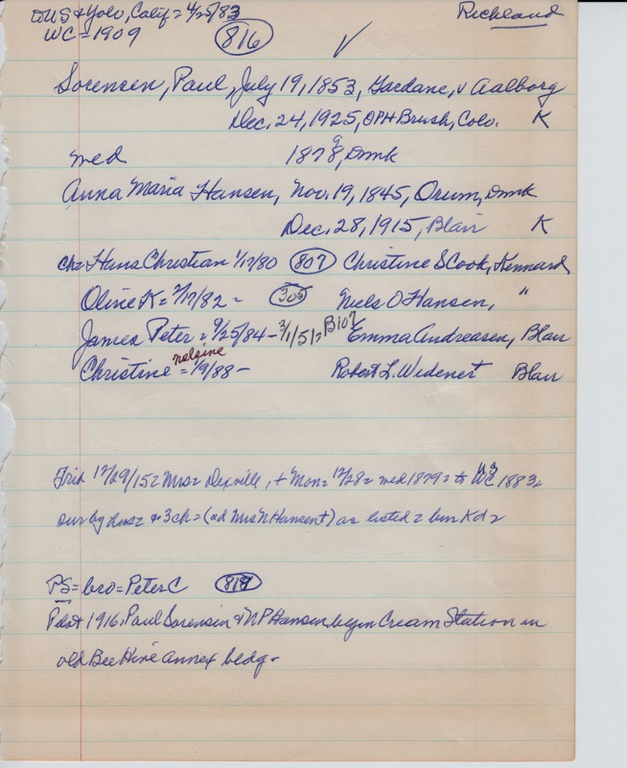 to US & Yolo, Calif = 4/25/83 Richland
WC = 1909 816 ✓
Sorensen, Paul, July 19, 1853, v Aalborg
Dec. 24, 1925, OPH Brush, Colo. K
med 1878 9, Dmk
Anna Maria Hansen, Nov. 19, 1845, Orum, Dmk
Dec. 28, 1915, Blair K
ch = Hans Christian 1/17/80 807 Christine S Cook, Kennard
Oline K = 2/17/82 = 305 Niels O Hansen, "
James Peter = 9/25/84 - 3/1/51 = B107 Emma Andreasen, Blair
nelsine
Christine = 1/9/88 - Robert L. Widener Blair
12/29/15 = Mrs = , + Mon = 12/28 = med 1879 = to US WC 1883 =
sur by husz & 3 ch = (ad Mrs N Hansen †) as listed = bur Kd =
PS = bro = Peter C 819
1916, Paul Sorensen & NP Hansen begin Cream Station in
old Bee Hive annex bldg -